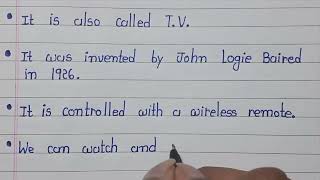 • It is also called T.V.
• It was invented by John Logie Baired
in 1926.
• It is controlled with a wireless remote.
• We can watch and